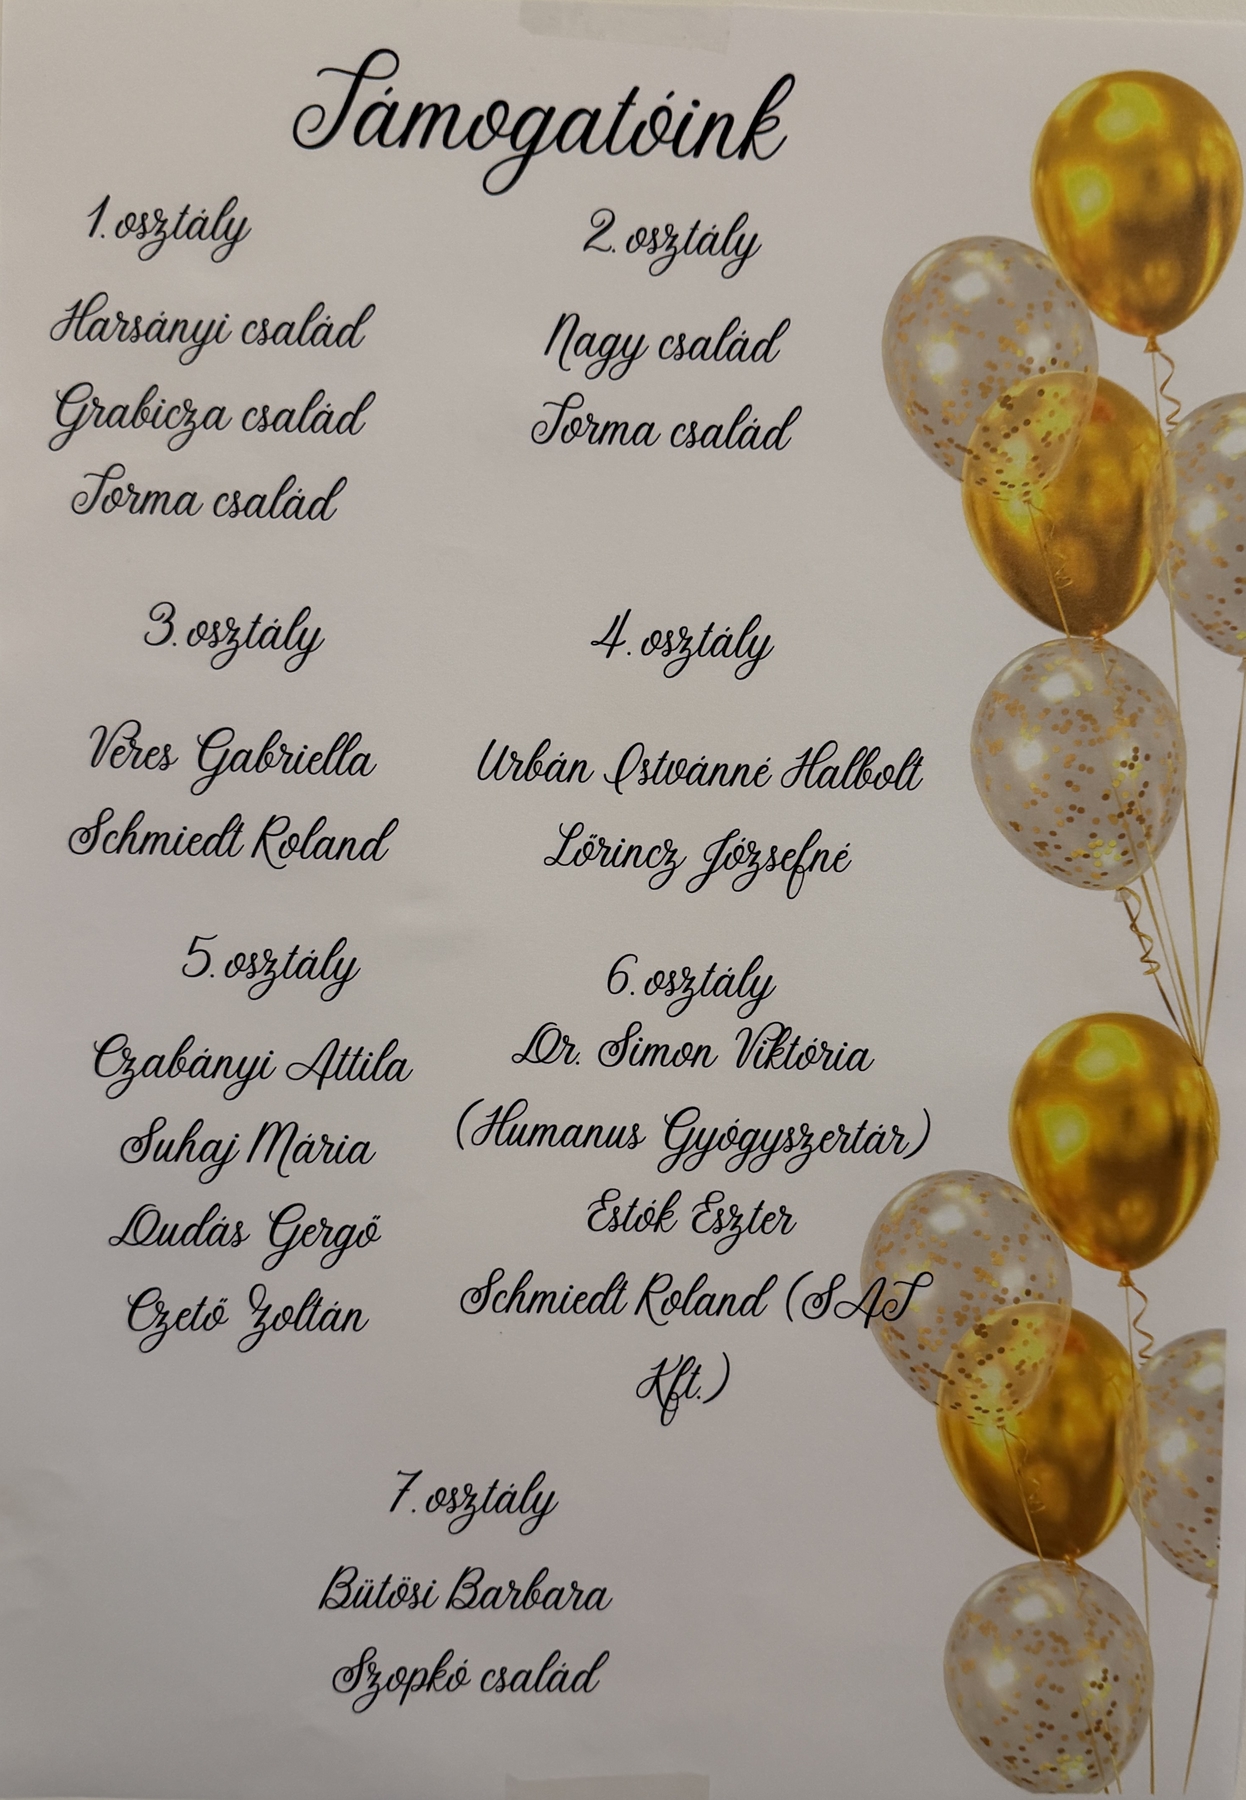 Támogatóink
1. osztály
Harsányi család
Grabicza család
Torma család
2. osztály
Nagy család
Torma család
3. osztály
Veres Gabriella
Schmiedt Roland
4. osztály
Urbán Istvánné Halbolt
Lőrincz Józsefné
5. osztály
Czabányi Attila
Suhaj Mária
Dudás Gergő
Czető Zoltán
6. osztály
Dr. Simon Viktória
(Humanus Gyógyszertár)
Estók Eszter
Schmiedt Roland (SAT
Kft.)
7. osztály
Bütösi Barbara
Szopkó család